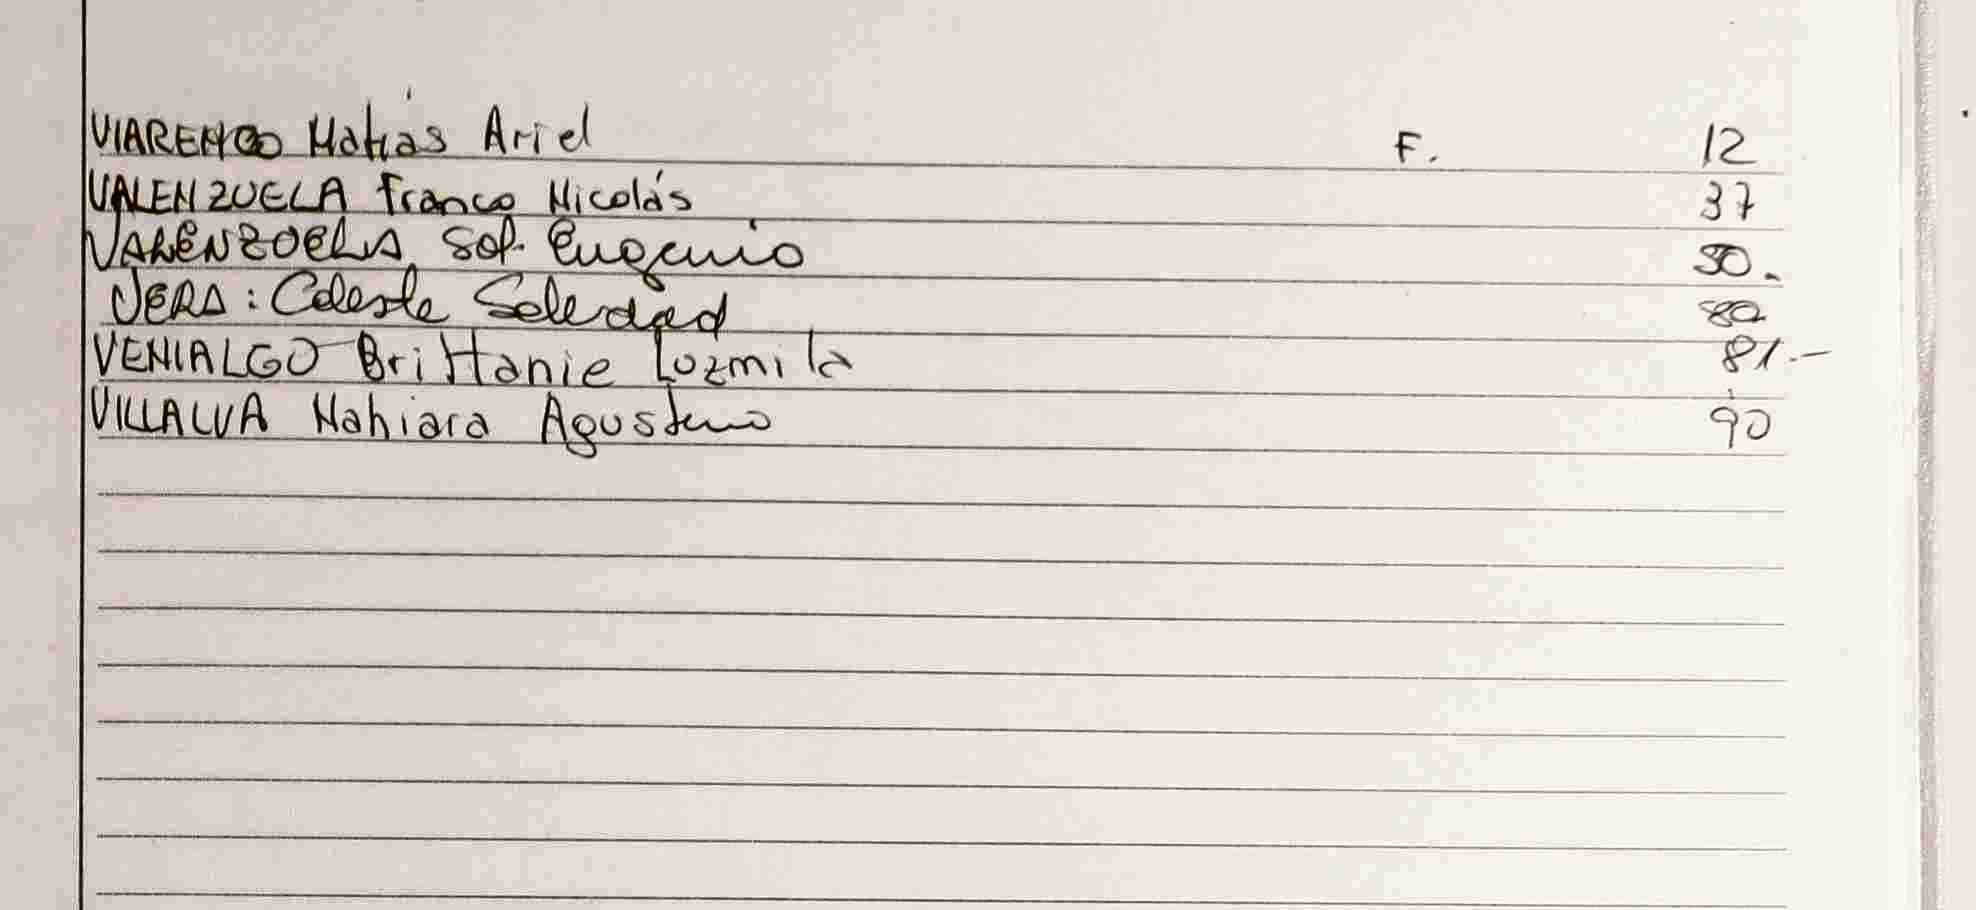 VIARENGO Matías Ariel F. 12
VALENZUELA Franco Nicolás 37
VALENZUELA Sof. Eugenia 50.
VERA: Celeste Soledad 80
VENIALGO Brittanie Luzmila 81.-
VILLALVA Nahiara Agustina 90